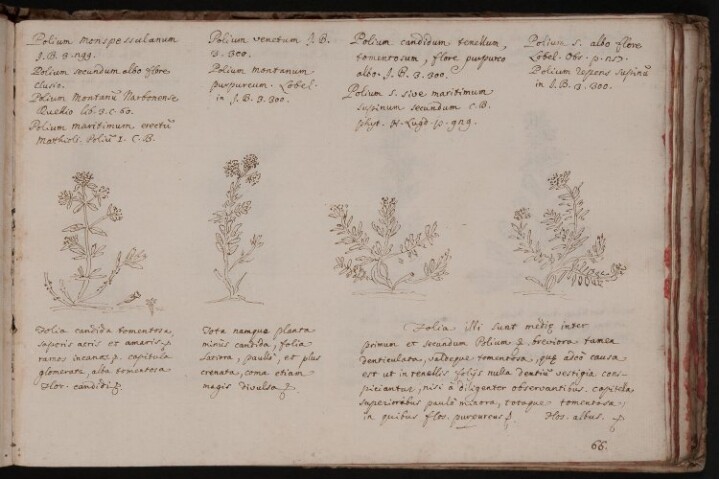 Polium monspessulanum
J. B. 3. 299.
Polium secundum albo flore
clusio.
Polium Montanũ Narbonense
Ruellio lib. 3. c. 60.
Polium maritimum erectũ
Mathioli. Poliũ I. C. B.
Polium venetum J. B.
3. 300.
Polium montanum
purpureum. Lobel.
in J. B. 3. 300.
Polium candidum tenellum,
tomentosum, flore purpureo
albo. J. B. 3. 300.
Polium s. sive maritimum
supinum secundum C. B.
phyt. H. Lugd. p.
Polium s. albo flore
Lobel. Obs. p.
Polium repens supinũ
in J. B. 3. 300.
Folia candida tomentosa
saporis acris et amaris.
ramos incanos. capitula
glomerata, alba tomentosa
Flos. candidi
Tota namque planta
minùs candida, folia
latiora, paulò, et plus
crenata, coma etiam
magis divulsa
Folia illi sunt mediæ inter
primum et secundum Polium, breviora tamen
denticulata, valdeque tomentosa, quæ adeò causa
est ut in tenellis folijs nulla dentiũ vestigia cons-
piciantur, nisi à diligenter observantibus. capitula
superioribus paulò minora, totaque tomentosa,
in quibus flos. purpureus. Flos. albus.
66.